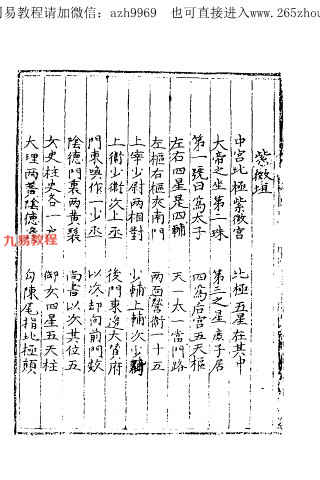 易教程请加微信：azh9969 也可直接进入www.265zhou
紫微垣
中宮北極紫微宮 北極五星在其中
大帝之坐第二珠 第三之星庶子居
第一號曰為太子 四為后宮五天樞
左右四星是四輔 天一太一當門路
左樞右樞夾南門 兩面營衛一十五
上宰少尉兩相對 少輔上輔次少
上衛少衛次上丞 後門東邊大贊府
門東喚作一少丞 以次却向前門数
陰德門裏兩黃聚 尚書以次其位五
女史柱史各一 御女四星五天柱
大理兩陰德 勾陳尾指北極顛
九易教程